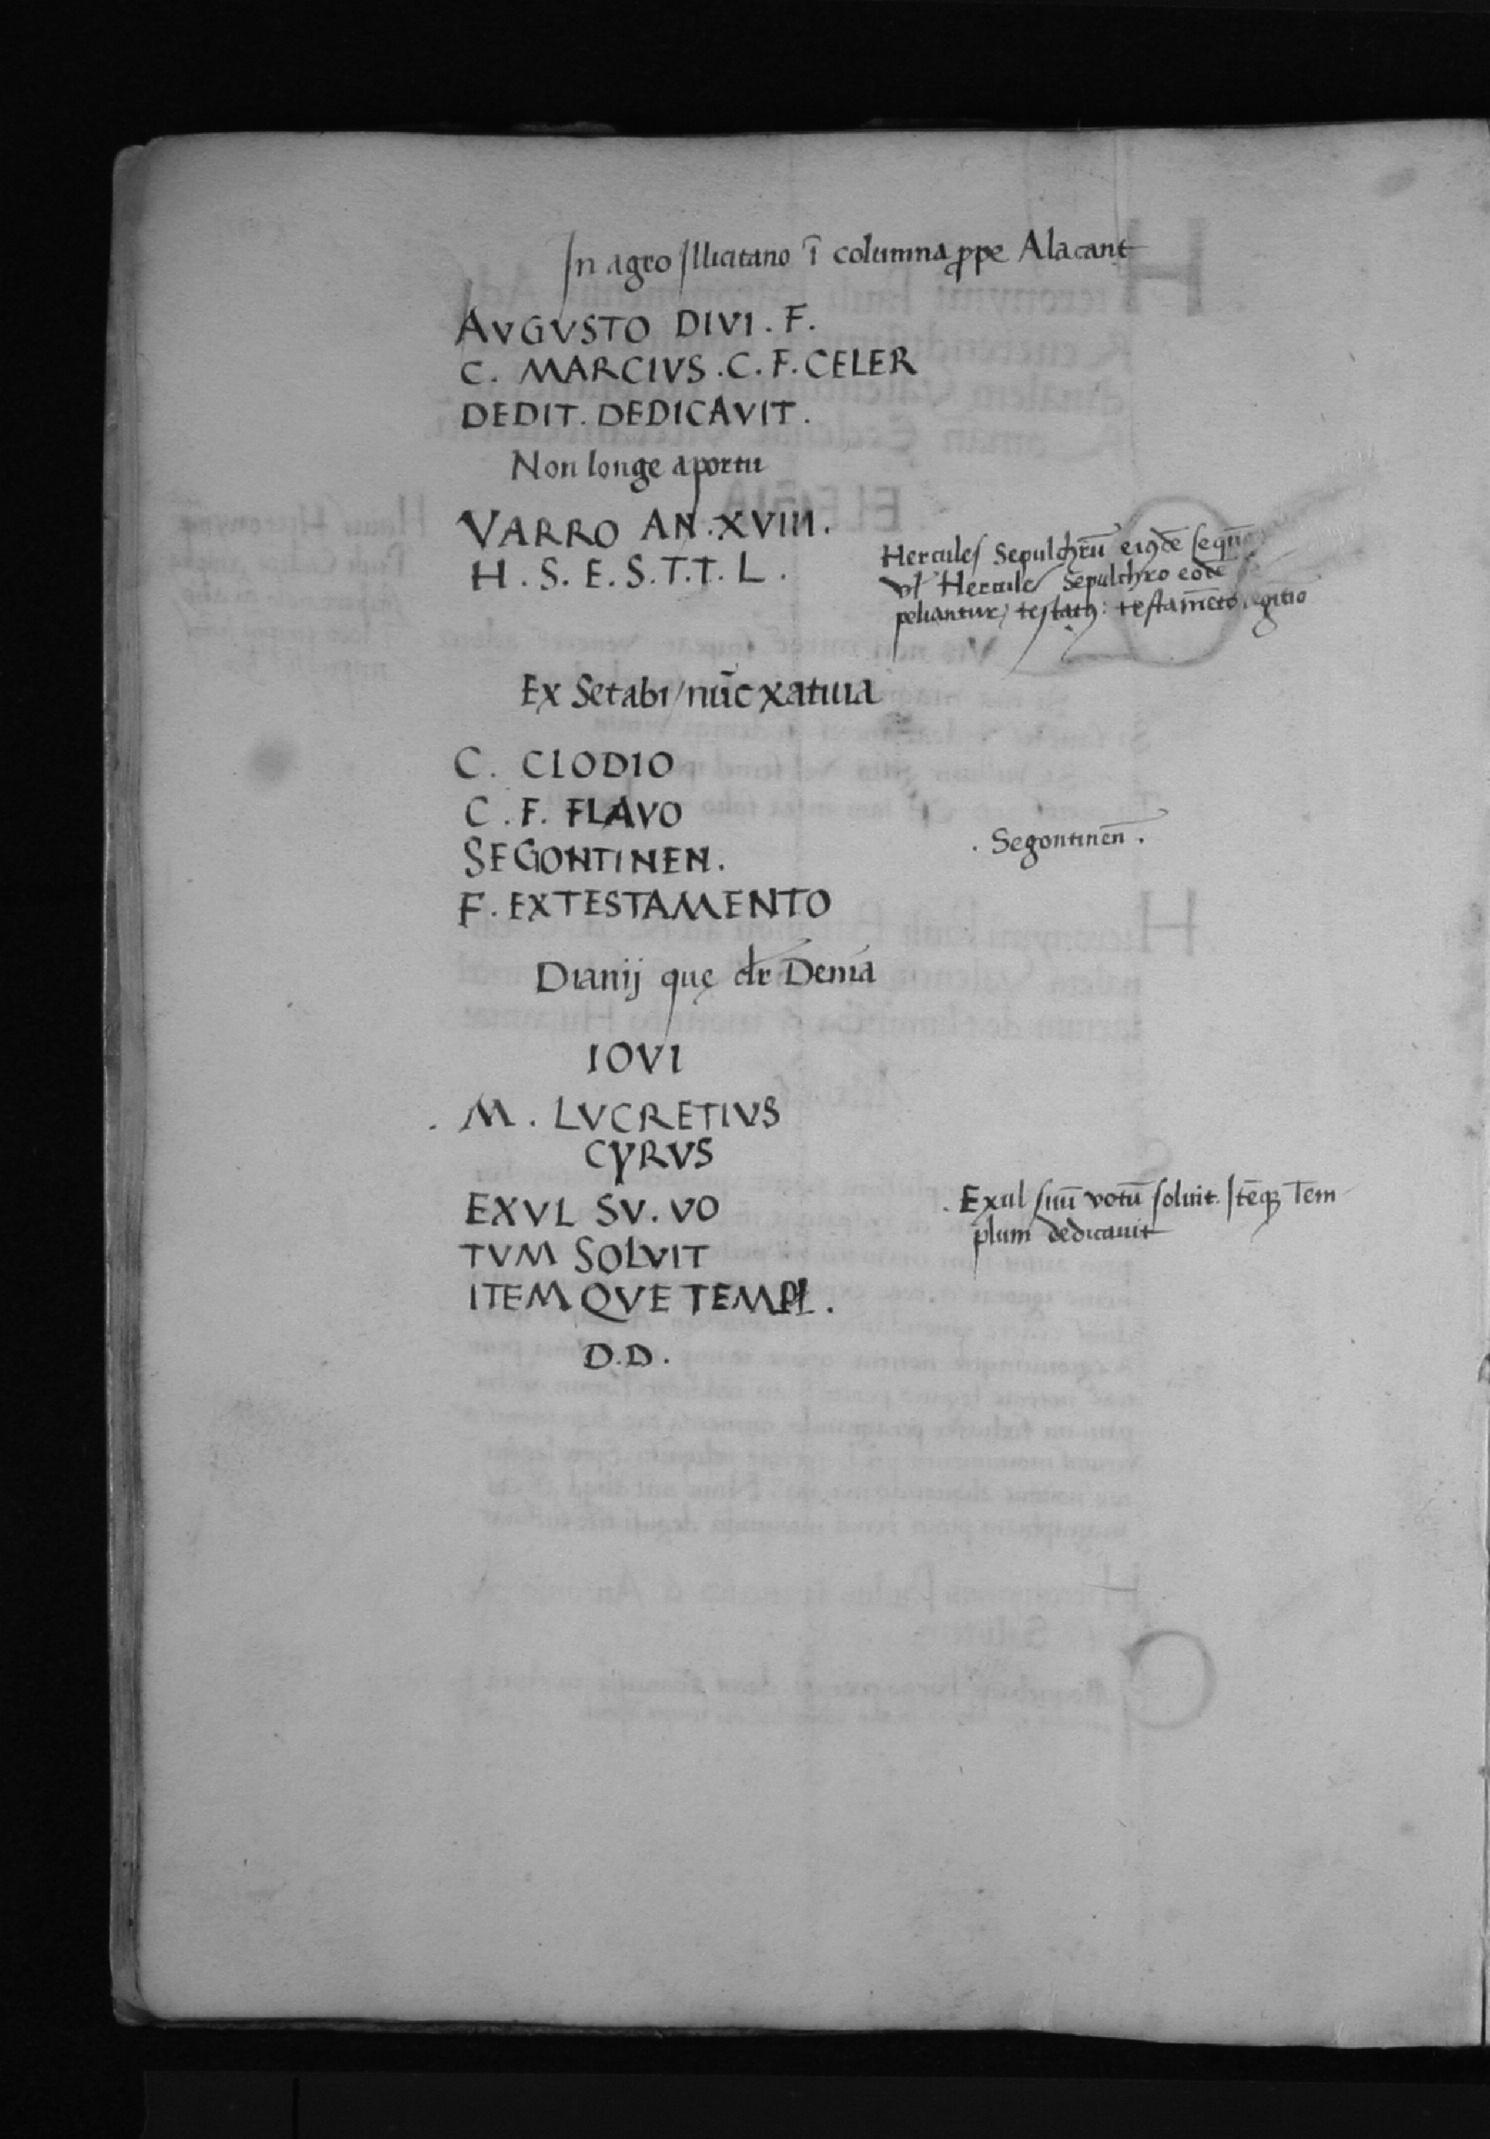 In agro Illicitano ī columna ꝓpe Alacant
AVGVSTO DIVI . F.
C. MARCIVS . C. F. CELER
DEDIT. DEDICAVIT.
Non longe a portu
VARRO AN. XVIII.
H. S. E. S. T. T. L.
Hercules Sepulchrū eiꝰdē
vl' Hercules Sepulchro eodē
peliantur, testatꝰ: testamēto
Ex Setabi / nūc xatiua
C. CLODIO
C. F. FLAVO
SEGONTINEN.
. Segontinen̄ .
F. EX TESTAMENTO
Dianij quę dr̄ Denia
IOVI
. M. LVCRETIVS
CYRVS
EXVL SV. VO
TVM SOLVIT
ITEMQVE TEMPL.
D.D.
. Exul suū votū soluit. Itēqꝫ Tem
plum dedicauit